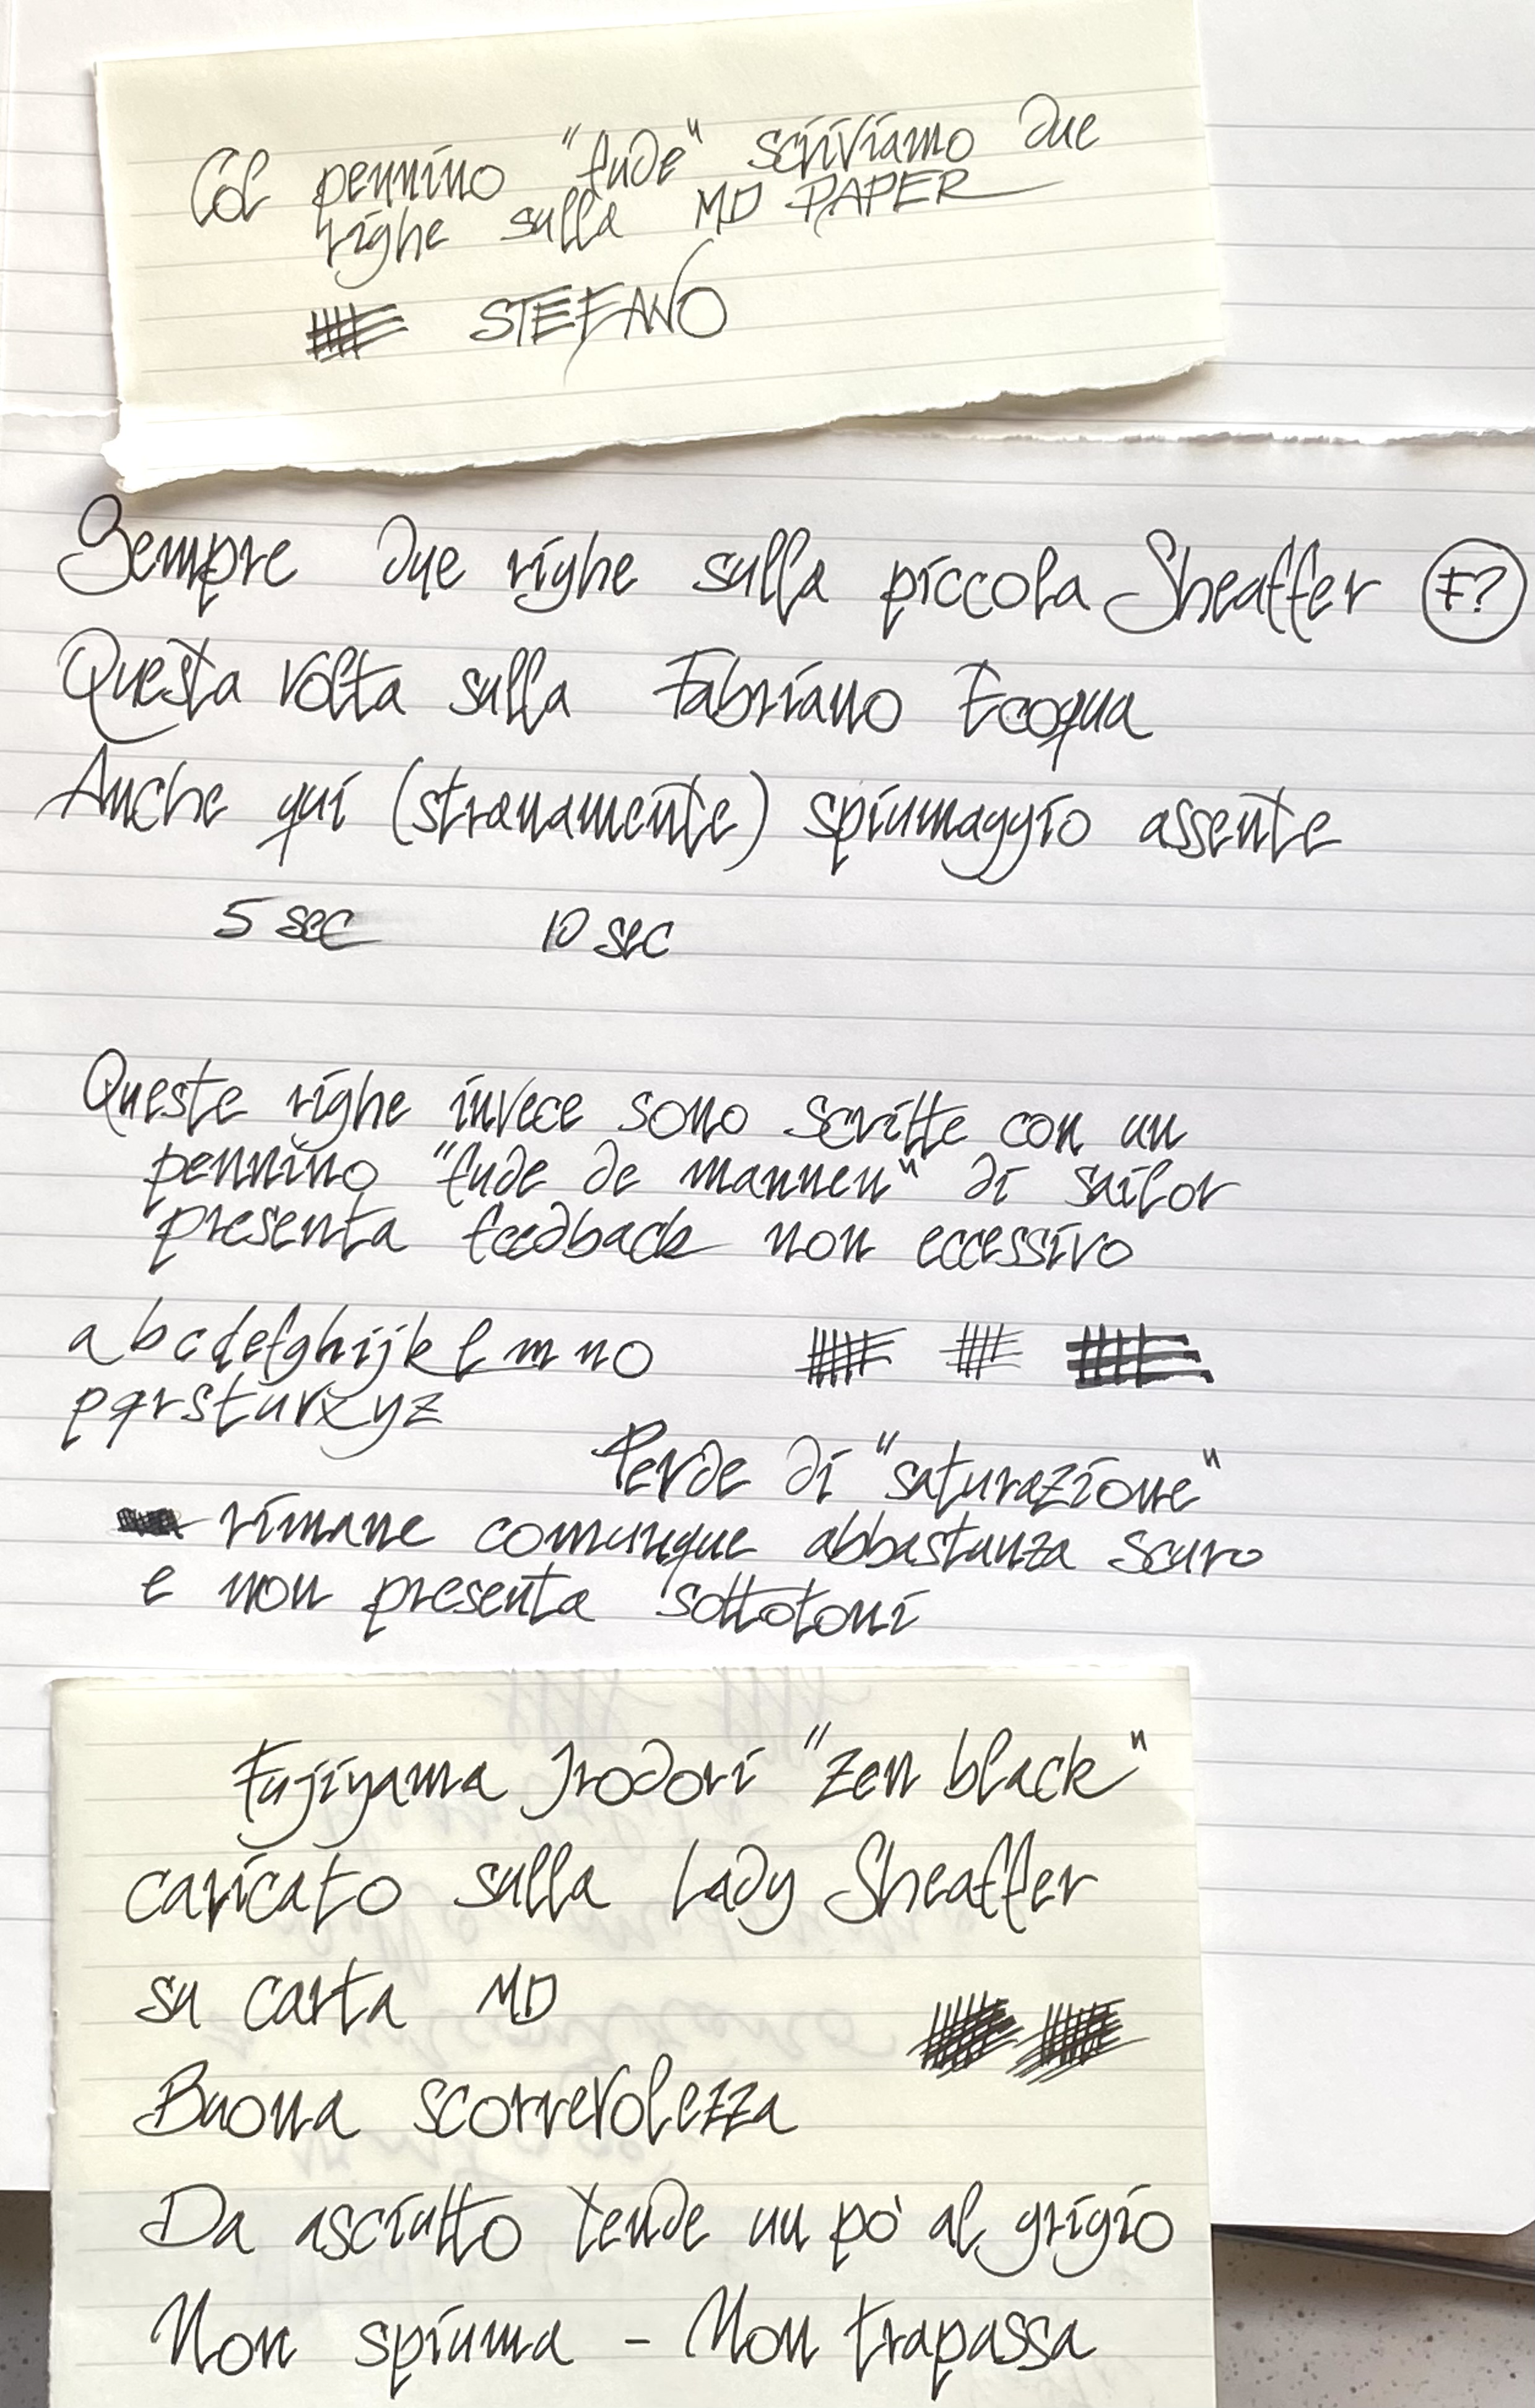 Col pennino "fude" scriviamo due
righe sulla MD PAPER
STEFANO
Sempre due righe sulla piccola Sheaffer F?
Questa volta sulla Fabriano Ecoqua
Anche qui (stranamente) spiumaggio assente
5 sec 10 sec
Queste righe invece sono scritte con un
pennino "fude de mannen" di sailor
presenta feedback non eccessivo
a b c d e f g h i j k l m n o
p q r s t u v x y z
Perde di "saturazione"
rimane comunque abbastanza scuro
e non presenta sottotoni
Fujiyama Irodori "zen black"
caricato sulla Lady Sheaffer
su carta MD
Buona scorrevolezza
Da asciutto tende un po' al grigio
Non spiuma - Non trapassa